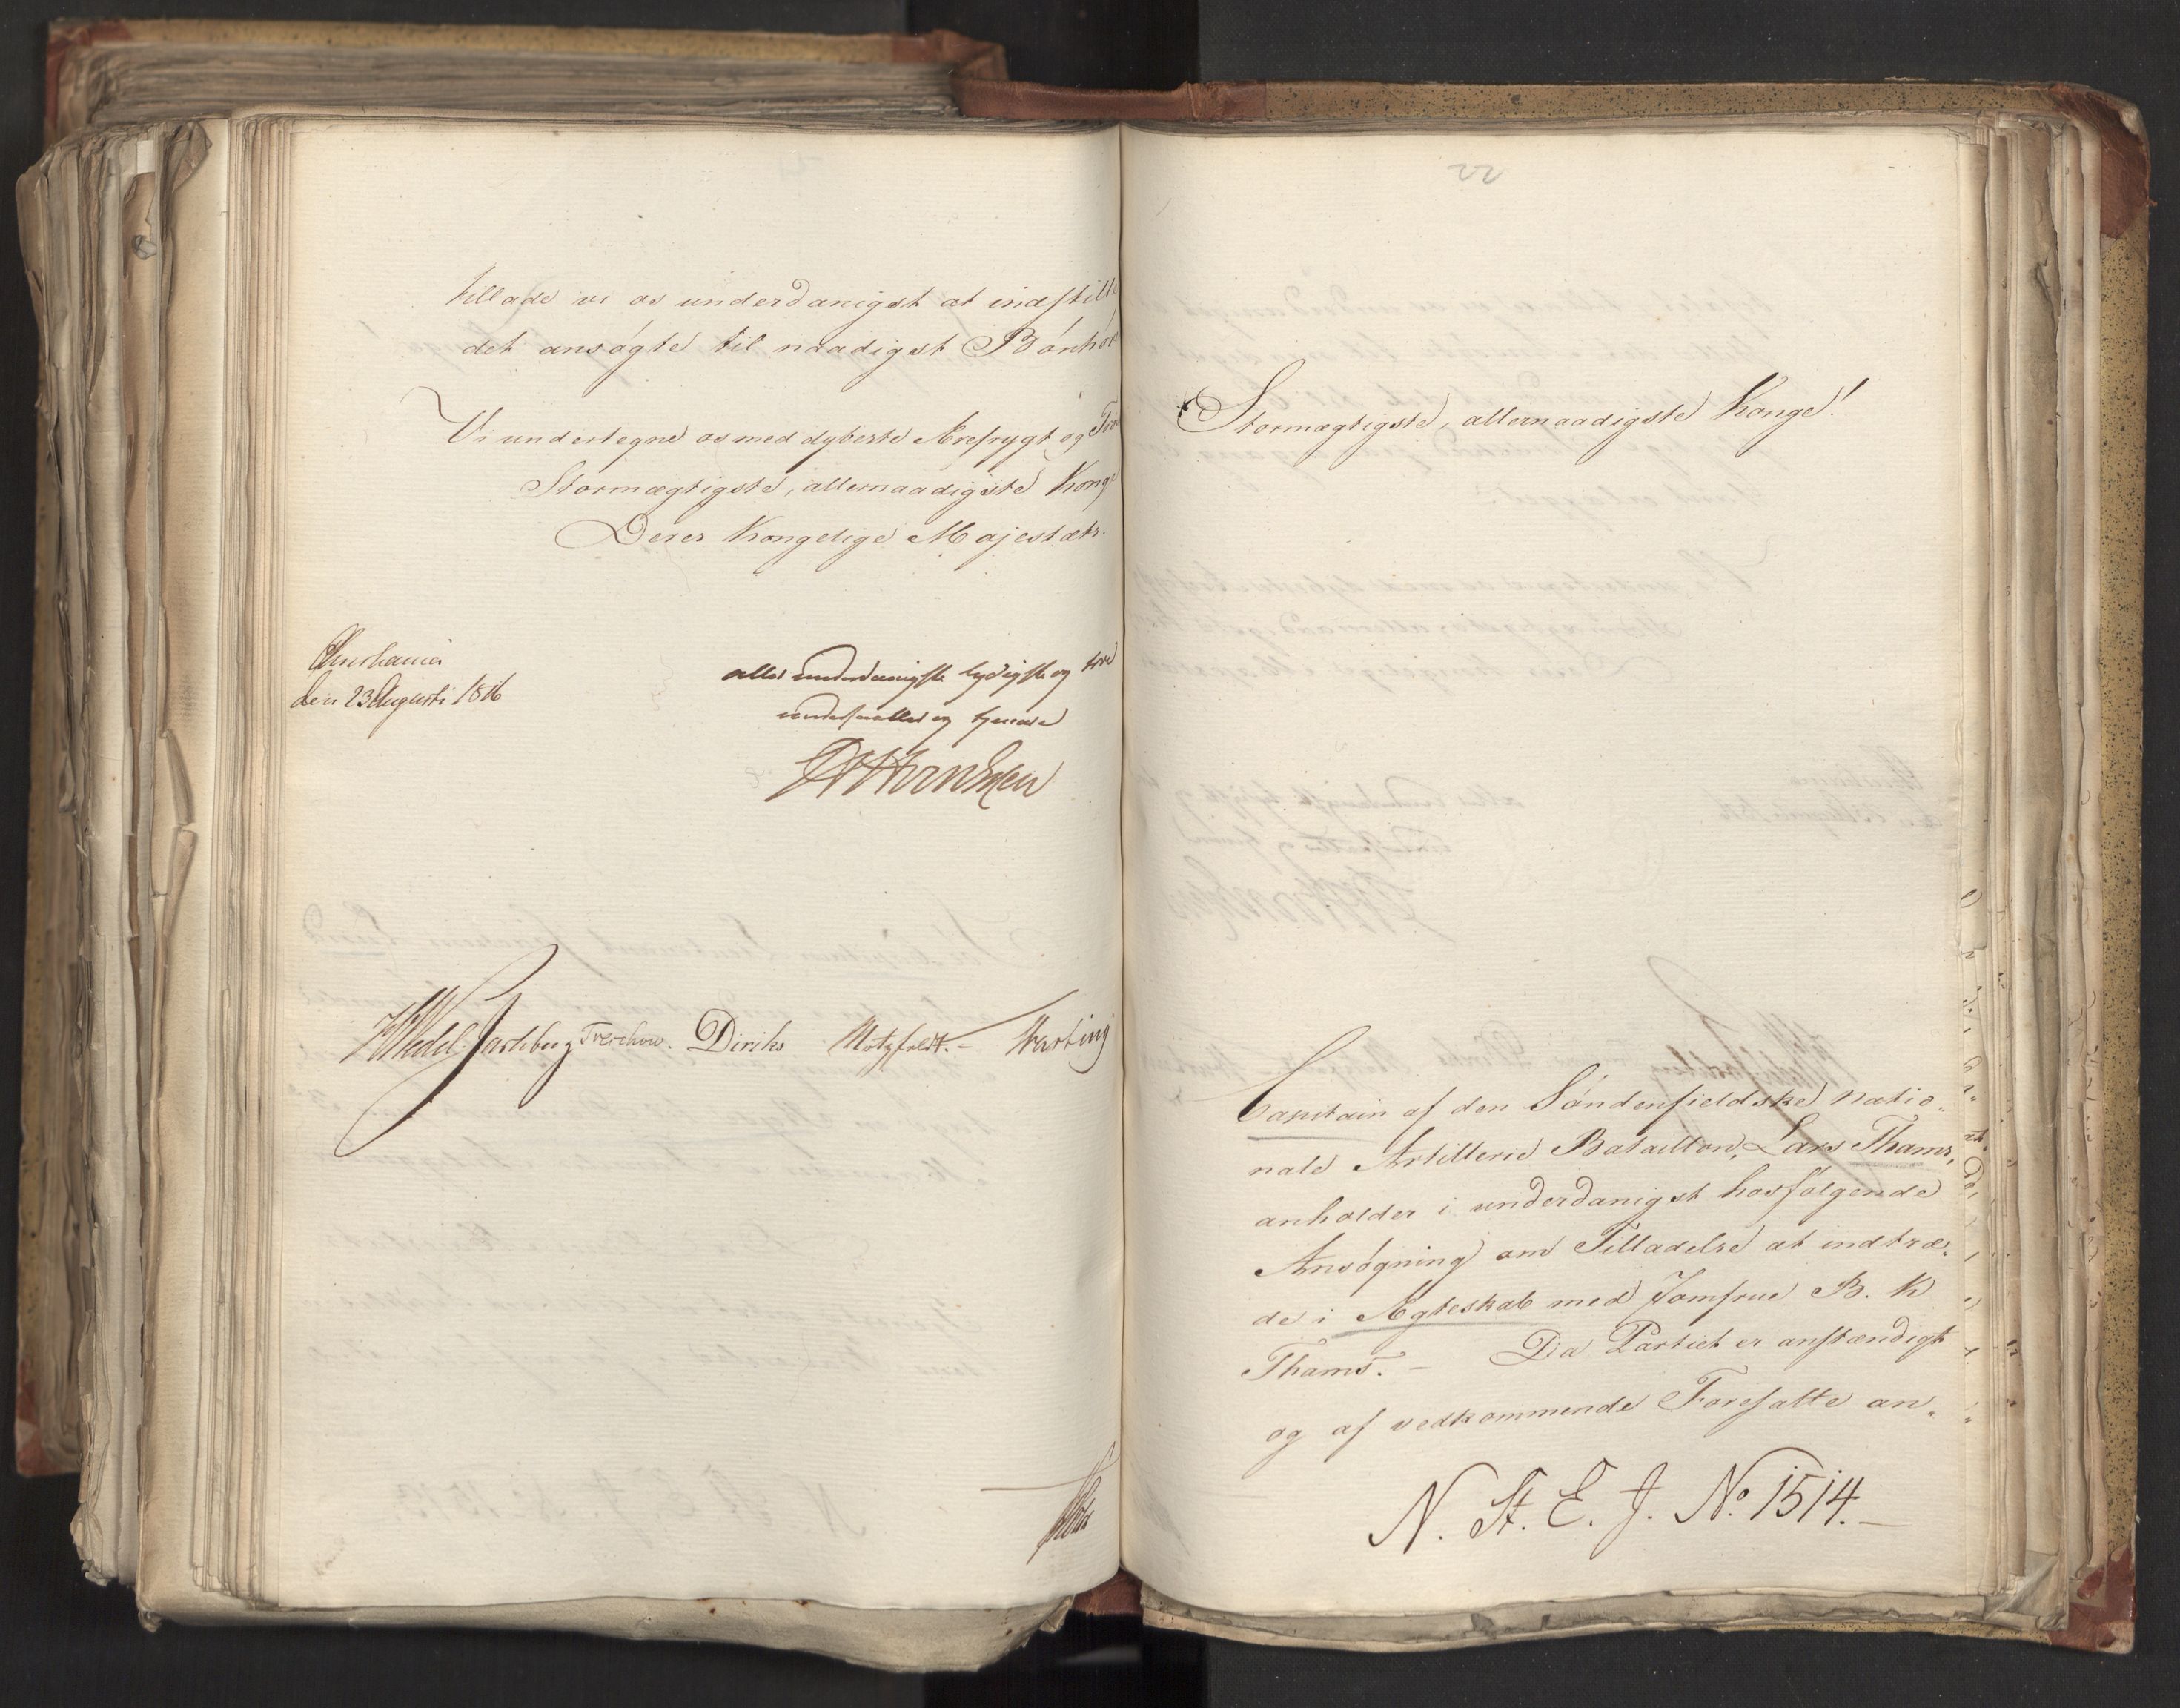 tillade vi os underdanigst at indstille
det ansøgte til naadigst Bønhør
Vi undertegne os med dybeste Ærefrygt og Tro
Stormægtigste, allernaadigste Konge
Deres Kongelige Majestæts.
Christiania
den 23 Augusti 1816
aller underdanigste lydigste og troe
undersaatter og tjenere
Wedel-Jarlsberg Treschow. Diriks Motzfeldt.- Harting
22
Stormægtigste, allernaadigste Konge!
Capitain af den Søndenfieldske natio„
nale Artillerie Bataillon, Lars Thams,
anholder i underdanigst hosfølgende
Ansøgning om Tilladelse at indtræ„
de i Ægteskab med Jomfrue B. K
Thams. - Da Partiet er anstændigt
og af vedkommende Foresatte an„
N. St. E. J. No. 1514.-